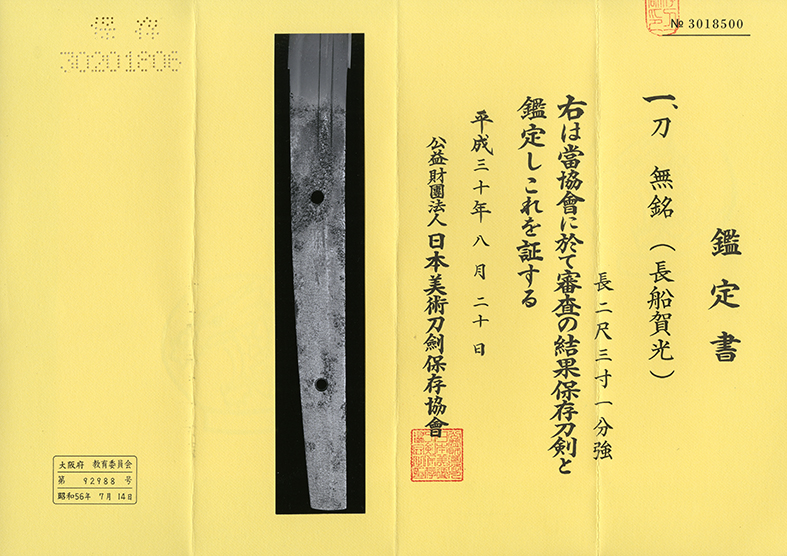 № 3018500
鑑定書
一、刀 無銘（長船賀光）
長二尺三寸一分強
右は當協會に於て審査の結果保存刀剣と
鑑定しこれを証する
平成三十年八月二十日
公益財團法人 日本美術刀劍保存協會
保存
30201806
大阪府 教育委員会
第 92988 号
昭和56年 7月 14日